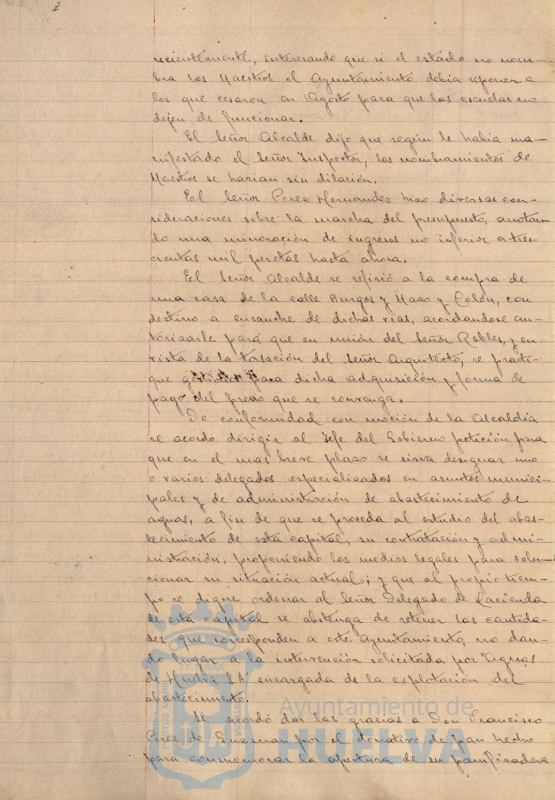 recientemente, interesando que si el estado no nom-
bra los Maestros el Ayuntamiento debia reponer a
los que cesaron en Agosto para que las escuelas no
dejen de funcionar.
El Señor Alcalde dijo que según le habia ma-
nifestado el Señor Inspector, los nombramientos de
Maestros se harian sin dilación.
El Señor Perez Hernandez hizo diversas con-
sideraciones sobre la marcha del presupuesto, anotan-
do una minoración de ingresos no inferior a tres-
cientas mil pesetas hasta ahora.
El Señor Alcalde se refirió a la compra de
una casa de la calle Burgos y Mazo y Colón, con
destino a ensanche de dichas vias, acordandose au-
torizarle para que en unión del Señor Robles, y en
vista de la tasación del Señor Arquitecto, se practi-
que para dicha adquisición y forma de
pago del precio que se convenga.
De conformidad con moción de la Alcaldia
se acordo dirigir al Jefe del Gobierno petición para
que en el mas breve plazo se sirva designar uno
o varios delegados especializados en asuntos munici-
pales y de administración de abastecimiento de
aguas, a fin de que se proceda al estudio del abas-
tecimiento de esta capital, su contratación y admi-
nistración, proponiendo los medios legales para solu-
cionar su situación actual; y que al propio tiem-
po se digne ordenar al Señor Delegado de Hacienda
de esta capital se abstenga de retener las cantida-
des que corresponden a este Ayuntamiento, no dan-
do lugar a la intervención solicitada por "Aguas
de Huelva S.A." encargada de la explotación del
abastecimiento.
Se acordó dar las gracias a Don Francisco
Perez de Guzman por el donativo de pan hecho
para conmemorar la apertura de su panificadora
Ayuntamiento de
HUELVA